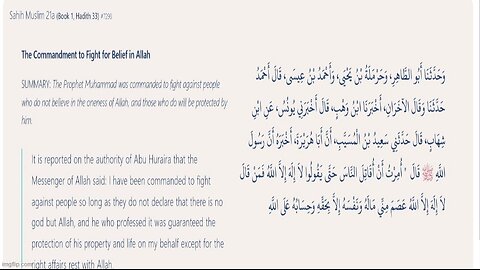 Sahih Muslim 21a (Book 1, Hadith 33) #7290
The Commandment to Fight for Belief in Allah
SUMMARY: The Prophet Muhammad was commanded to fight against people
who do not believe in the oneness of Allah, and those who do will be protected by
him.
It is reported on the authority of Abu Huraira that the
Messenger of Allah said: I have been commanded to
fight against people so long as they do not declare that there is no
god but Allah, and he who professed it was guaranteed the
protection of his property and life on my behalf except for the
right affairs rest with Allah
وَحَدَّثَنَا أَبُو الطَّاهِرِ، وَحَرْمَلَةُ بْنُ يَحْيَى، وَأَحْمَدُ بْنُ عِيسَى، قَالَ أَحْمَدُ
حَدَّثَنَا وَقَالَ الآخَرَانِ، أَخْبَرَنَا ابْنُ وَهْبٍ، قَالَ أَخْبَرَنِي يُونُسُ، عَنِ ابْنِ
شِهَابٍ، قَالَ حَدَّثَنِي سَعِيدُ بْنُ الْمُسَيَّبِ، أَنَّ أَبَا هُرَيْرَةَ، أَخْبَرَهُ أَنَّ رَسُولَ
اللَّهِ ﷺ قَالَ " أُمِرْتُ أَنْ أُقَاتِلَ النَّاسَ حَتَّى يَقُولُوا لاَ إِلَهَ إِلاَّ اللَّهُ فَمَنْ قَالَ
لاَ إِلَهَ إِلاَّ اللَّهُ عَصَمَ مِنِّي مَالَهُ وَنَفْسَهُ إِلاَّ بِحَقِّهِ وَحِسَابُهُ عَلَى اللَّهِ
imgflip.com